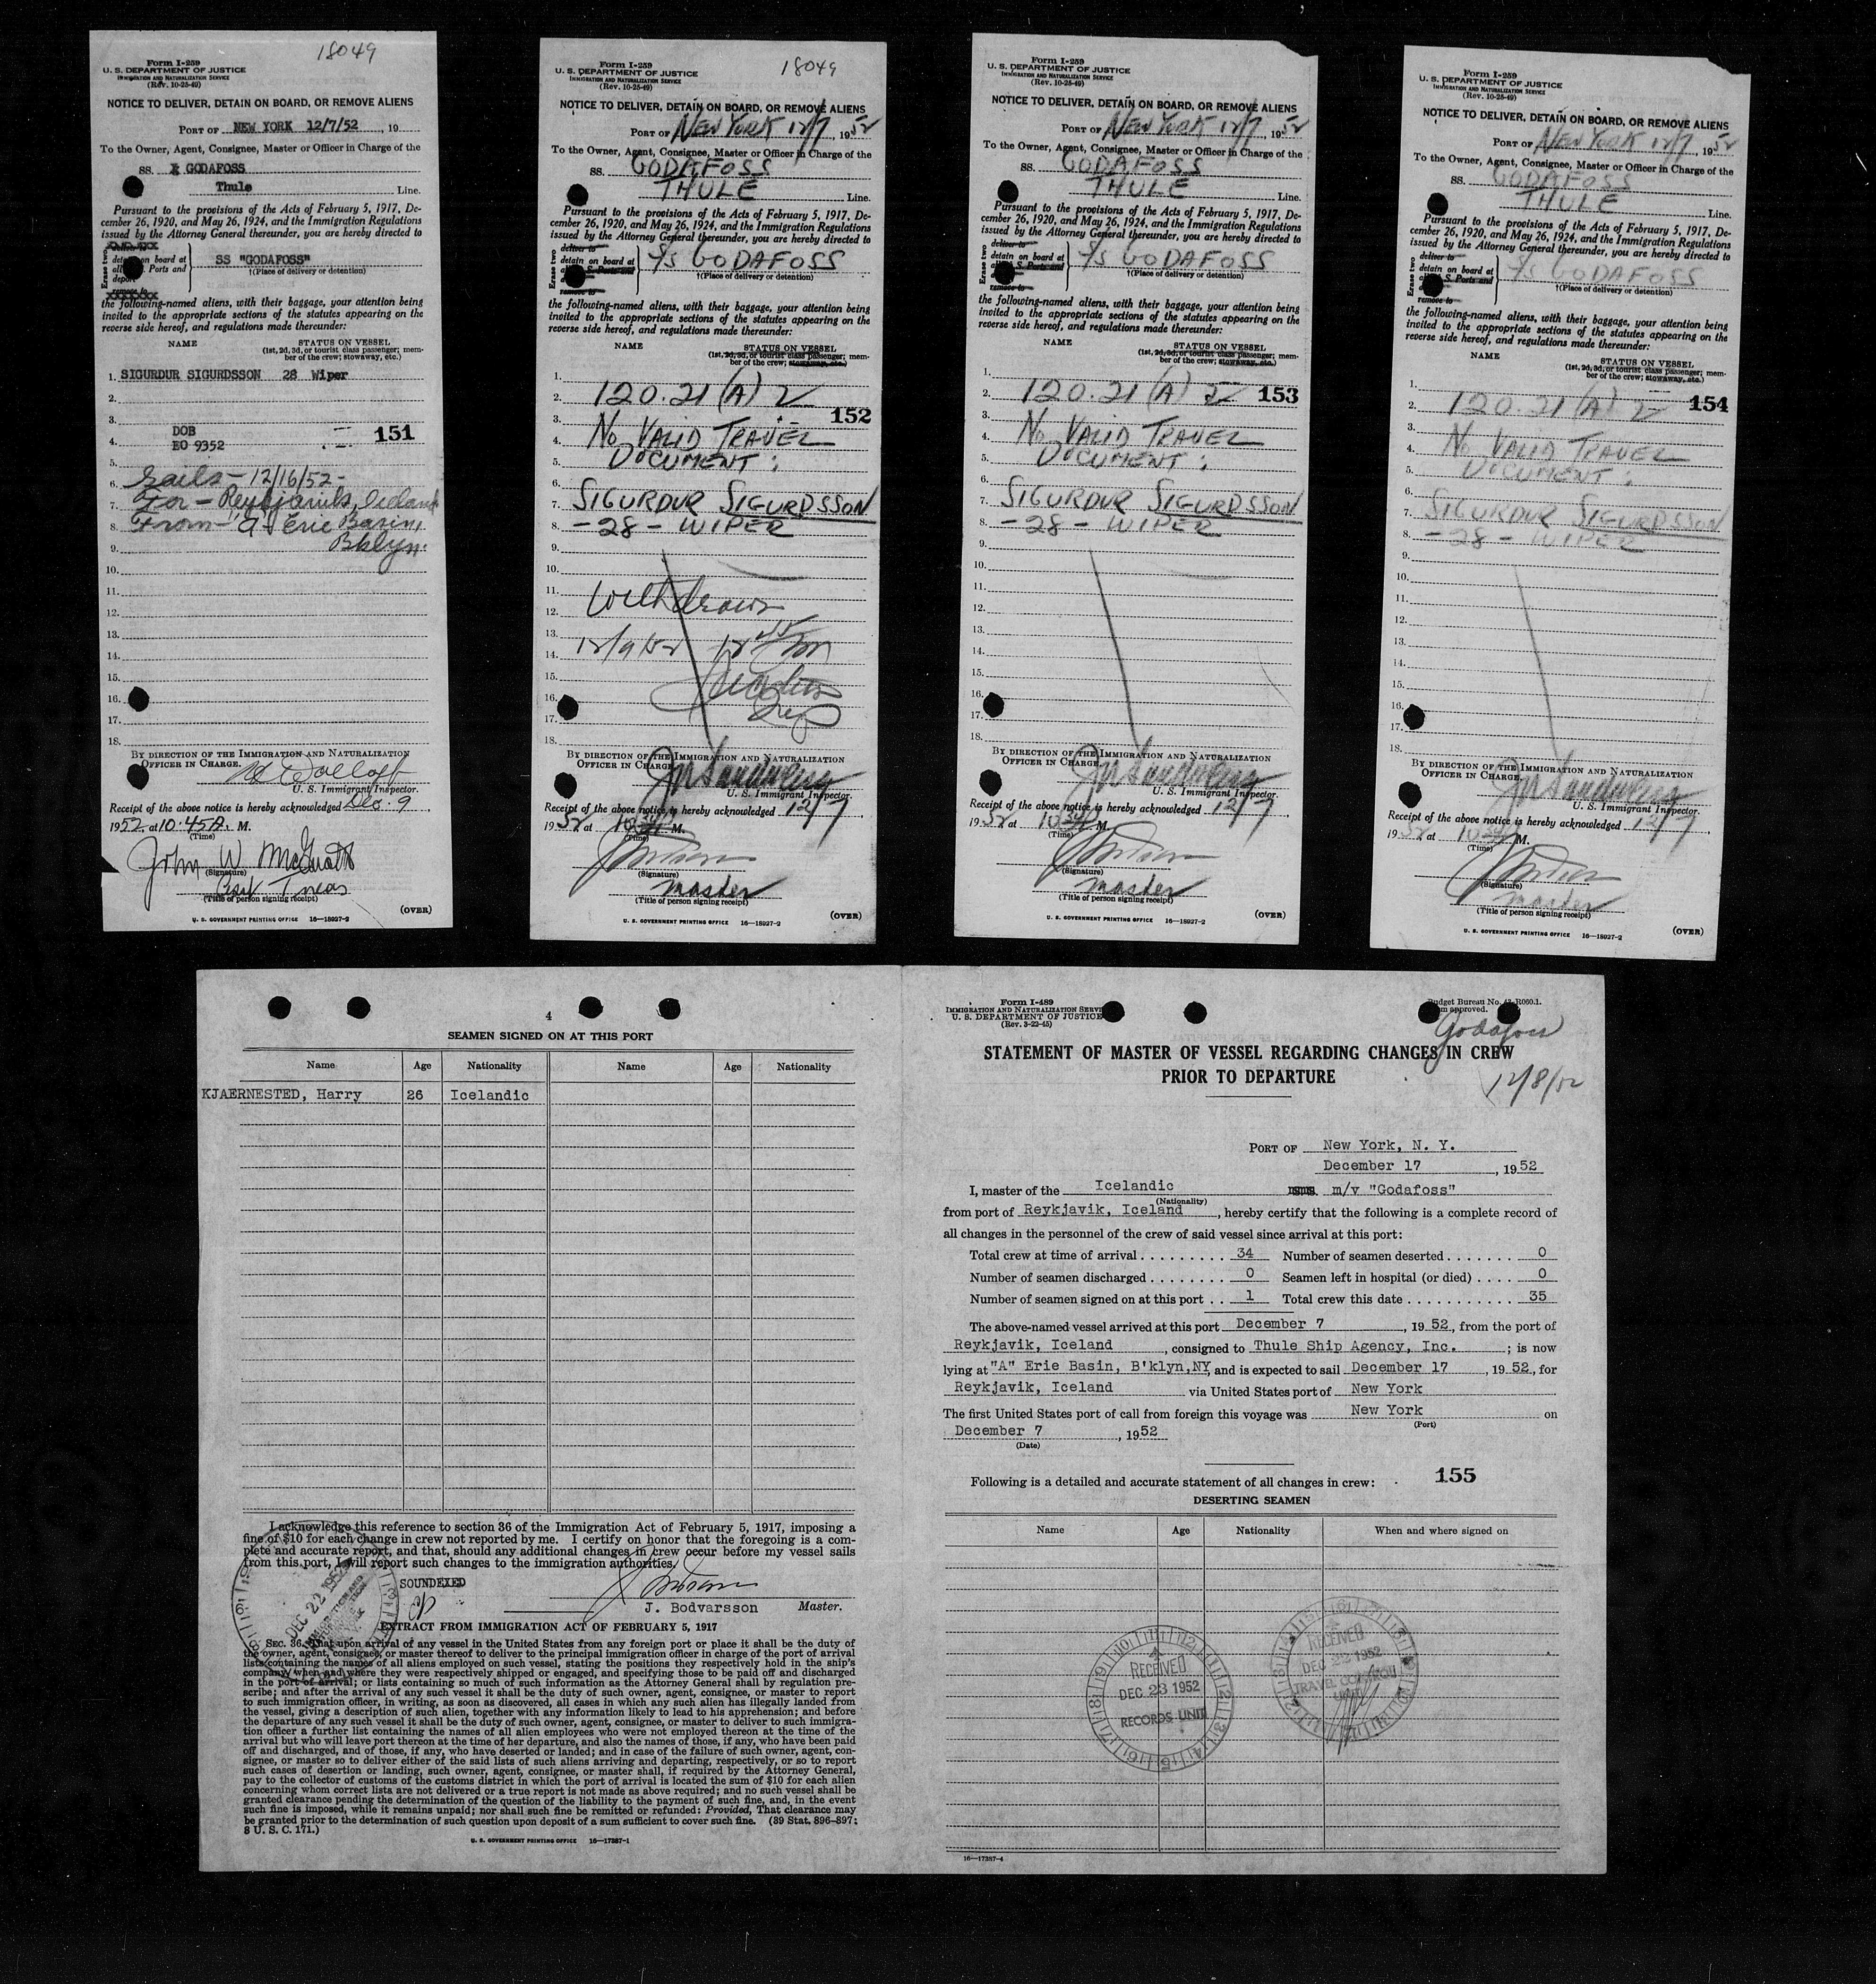 18049
Form I-259
U. S. DEPARTMENT OF JUSTICE
IMMIGRATION AND NATURALIZATION SERVICE
(Rev. 10-25-49)
NOTICE TO DELIVER, DETAIN ON BOARD, OR REMOVE ALIENS
PORT OF NEW YORK 12/7/52 , 19
To the Owner, Agent, Consignee, Master or Officer in Charge of the
SS. GODAFOSS
Thule Line.
Pursuant to the provisions of the Acts of February 5, 1917, De-
cember 26, 1920, and May 26, 1924, and the Immigration Regulations
issued by the Attorney General thereunder, you are hereby directed to
detain on board at
all U. S. Ports and
deport
remove to
SS "GODAFOSS"
†(Place of delivery or detention)
the following-named aliens, with their baggage, your attention being
invited to the appropriate sections of the statutes appearing on the
reverse side hereof, and regulations made thereunder:
NAME STATUS ON VESSEL
(1st, 2d, 3d, or tourist class passenger; mem-
ber of the crew; stowaway, etc.)
1. SIGURDUR SIGURDSSON 28 Wiper
2.
3.
DOB
4. EO 9352 151
5.
6. Sails - 12/16/52 -
7. For - Reykjavik, Iceland
8. From - "A" Erie Basin,
9. Bklyn.
10.
11.
12.
13.
14.
15.
16.
17.
18.
BY DIRECTION OF THE IMMIGRATION AND NATURALIZATION
OFFICER IN CHARGE.
U. S. Immigrant Inspector.
Receipt of the above notice is hereby acknowledged Dec. 9,
1952, at 10:45 A. M.
(Time)
John W.
(Signature)
(Title of person signing receipt)
U. S. GOVERNMENT PRINTING OFFICE 16—18927-2
(OVER)
18049
Form I-259
U. S. DEPARTMENT OF JUSTICE
IMMIGRATION AND NATURALIZATION SERVICE
(Rev. 10-25-49)
NOTICE TO DELIVER, DETAIN ON BOARD, OR REMOVE ALIENS
PORT OF NEW YORK 12/7, 1952
To the Owner, Agent, Consignee, Master or Officer in Charge of the
SS. GODAFOSS
THULE Line.
Pursuant to the provisions of the Acts of February 5, 1917, De-
cember 26, 1920, and May 26, 1924, and the Immigration Regulations
issued by the Attorney General thereunder, you are hereby directed to
Erase two
deliver to
detain on board at
all U. S. Ports and
S/S GODAFOSS
†(Place of delivery or detention)
the following-named aliens, with their baggage, your attention being
invited to the appropriate sections of the statutes appearing on the
reverse side hereof, and regulations made thereunder:
NAME STATUS ON VESSEL
(1st, 2d, 3d, or tourist class passenger; mem-
ber of the crew; stowaway, etc.)
1.
2. 120.21 (A) 2
3. 152
4. NO VALID TRAVEL
5. DOCUMENT:
6.
7. SIGURDUR SIGURDSSON
8. -28- WIPER
9.
10.
11.
12. Withdrawn
13.
14. 12/9/52
15.
16.
17.
18.
BY DIRECTION OF THE IMMIGRATION AND NATURALIZATION
OFFICER IN CHARGE.
U. S. Immigrant Inspector.
Receipt of the above notice is hereby acknowledged 12/7,
1952 at 10 M.
(Time)
(Signature)
master
(Title of person signing receipt)
U. S. GOVERNMENT PRINTING OFFICE 16—18927-2
(OVER)
Form I-259
U. S. DEPARTMENT OF JUSTICE
IMMIGRATION AND NATURALIZATION SERVICE
(Rev. 10-25-49)
NOTICE TO DELIVER, DETAIN ON BOARD, OR REMOVE ALIENS
PORT OF NEW YORK 12/7, 1952
To the Owner, Agent, Consignee, Master or Officer in Charge of the
SS. GODAFOSS
THULE Line.
Pursuant to the provisions of the Acts of February 5, 1917, De-
cember 26, 1920, and May 26, 1924, and the Immigration Regulations
issued by the Attorney General thereunder, you are hereby directed to
Erase two
deliver to
detain on board at
all U. S. Ports and
remove to
S/S GODAFOSS
†(Place of delivery or detention)
the following-named aliens, with their baggage, your attention being
invited to the appropriate sections of the statutes appearing on the
reverse side hereof, and regulations made thereunder:
NAME STATUS ON VESSEL
(1st, 2d, 3d, or tourist class passenger; mem-
ber of the crew; stowaway, etc.)
1.
2. 120.21 (A) 2 153
3.
4. NO VALID TRAVEL
5. DOCUMENT:
6.
7. SIGURDUR SIGURDSSON
8. -28- WIPER
9.
10.
11.
12.
13.
14.
15.
16.
17.
18.
BY DIRECTION OF THE IMMIGRATION AND NATURALIZATION
OFFICER IN CHARGE.
U. S. Immigrant Inspector.
Receipt of the above notice is hereby acknowledged 12/7,
1952 at 10 M.
(Time)
(Signature)
master
(Title of person signing receipt)
U. S. GOVERNMENT PRINTING OFFICE 16—18927-2
(OVER)
Form I-259
U. S. DEPARTMENT OF JUSTICE
IMMIGRATION AND NATURALIZATION SERVICE
(Rev. 10-25-49)
NOTICE TO DELIVER, DETAIN ON BOARD, OR REMOVE ALIENS
PORT OF NEW YORK 12/7, 1952
To the Owner, Agent, Consignee, Master or Officer in Charge of the
SS. GODAFOSS
THULE Line.
Pursuant to the provisions of the Acts of February 5, 1917, De-
cember 26, 1920, and May 26, 1924, and the Immigration Regulations
issued by the Attorney General thereunder, you are hereby directed to
Erase two
deliver to
detain on board at
all U. S. Ports and
remove to
S/S GODAFOSS
†(Place of delivery or detention)
the following-named aliens, with their baggage, your attention being
invited to the appropriate sections of the statutes appearing on the
reverse side hereof, and regulations made thereunder:
NAME STATUS ON VESSEL
(1st, 2d, 3d, or tourist class passenger; mem-
ber of the crew; stowaway, etc.)
1.
2. 120.21 (A) 2 154
3.
4. NO VALID TRAVEL
5. DOCUMENT:
6.
7. SIGURDUR SIGURDSSON
8. -28- WIPER
9.
10.
11.
12.
13.
14.
15.
16.
17.
18.
BY DIRECTION OF THE IMMIGRATION AND NATURALIZATION
OFFICER IN CHARGE.
U. S. Immigrant Inspector.
Receipt of the above notice is hereby acknowledged 12/7,
1952 at 10 M.
(Time)
(Signature)
master
(Title of person signing receipt)
U. S. GOVERNMENT PRINTING OFFICE 16—18927-2
(OVER)
4
SEAMEN SIGNED ON AT THIS PORT
Name Age Nationality Name Age Nationality
KJAERNESTED, Harry 26 Icelandic
I acknowledge this reference to section 36 of the Immigration Act of February 5, 1917, imposing a
fine of $10 for each change in crew not reported by me. I certify on honor that the foregoing is a com-
plete and accurate report, and that, should any additional changes in crew occur before my vessel sails
from this port, I will report such changes to the immigration authorities.
SOUNDEXED
DEC 22 1952
J. Bodvarsson Master.
EXTRACT FROM IMMIGRATION ACT OF FEBRUARY 5, 1917
SEC. 36. That upon arrival of any vessel in the United States from any foreign port or place it shall be the duty of
the owner, agent, consignee, or master thereof to deliver to the principal immigration officer in charge of the port of arrival
lists containing the names of all aliens employed on such vessel, stating the positions they respectively hold in the ship's
company, when and where they were respectively shipped or engaged, and specifying those to be paid off and discharged
in the port of arrival; or lists containing so much of such information as the Attorney General shall by regulation pre-
scribe; and after the arrival of any such vessel it shall be the duty of such owner, agent, consignee, or master to report
to such immigration officer, in writing, as soon as discovered, all cases in which any such alien has illegally landed from
the vessel, giving a description of such alien, together with any information likely to lead to his apprehension; and before
the departure of any such vessel it shall be the duty of such owner, agent, consignee, or master to deliver to such immigra-
tion officer a further list containing the names of all alien employees who were not employed thereon at the time of the
arrival but who will leave port thereon at the time of her departure, and also the names of those, if any, who have been paid
off and discharged, and of those, if any, who have deserted or landed; and in case of the failure of such owner, agent, con-
signee, or master so to deliver either of the said lists of such aliens arriving and departing, respectively, or so to report
such cases of desertion or landing, such owner, agent, consignee, or master shall, if required by the Attorney General,
pay to the collector of customs of the customs district in which the port of arrival is located the sum of $10 for each alien
concerning whom correct lists are not delivered or a true report is not made as above required; and no such vessel shall be
granted clearance pending the determination of the question of the liability to the payment of such fine, and, in the event
such fine is imposed, while it remains unpaid; nor shall such fine be remitted or refunded: Provided, That clearance may
be granted prior to the determination of such question upon deposit of a sum sufficient to cover such fine. (39 Stat. 896-897;
8 U. S. C. 171.)
U. S. GOVERNMENT PRINTING OFFICE 16—17287-1
Form I-489
IMMIGRATION AND NATURALIZATION SERVICE
U. S. DEPARTMENT OF JUSTICE
(Rev. 3-22-45)
Budget Bureau No. 43-R060.1.
Form approved.
Godafoss
12/8/52
STATEMENT OF MASTER OF VESSEL REGARDING CHANGES IN CREW
PRIOR TO DEPARTURE
PORT OF New York, N. Y.
December 17 , 1952
I, master of the Icelandic m/v "Godafoss"
(Nationality)
from port of Reykjavik, Iceland , hereby certify that the following is a complete record of
all changes in the personnel of the crew of said vessel since arrival at this port:
Total crew at time of arrival . . . . . . . . . 34 Number of seamen deserted . . . . . . . 0
Number of seamen discharged . . . . . . . . 0 Seamen left in hospital (or died) . . . . 0
Number of seamen signed on at this port . . 1 Total crew this date . . . . . . . . . . . . 35
The above-named vessel arrived at this port December 7 , 1952, from the port of
Reykjavik, Iceland , consigned to Thule Ship Agency, Inc. ; is now
lying at "A" Erie Basin, B'klyn,NY, and is expected to sail December 17 , 1952, for
Reykjavik, Iceland via United States port of New York
The first United States port of call from foreign this voyage was New York on
(Port)
December 7 , 1952
(Date)
Following is a detailed and accurate statement of all changes in crew: 155
DESERTING SEAMEN
Name Age Nationality When and where signed on
RECEIVED
DEC 23 1952
RECORDS UNIT
RECEIVED
DEC 22 1952
TRAVEL CONTROL
UNIT
16—17287-4